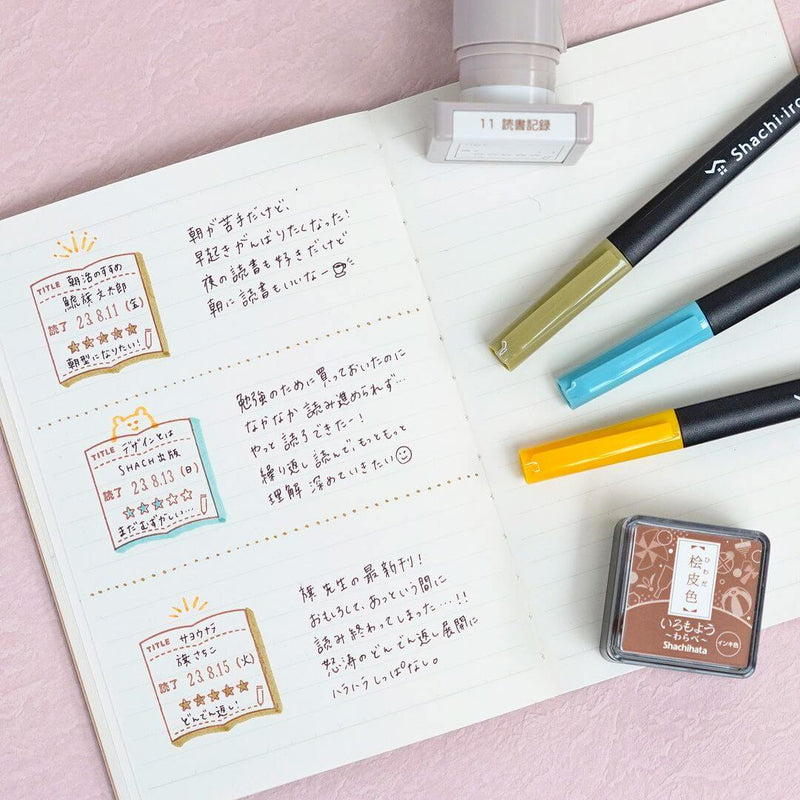 11 読書記録
Shachi・iro
TITLE 朝活のすすめ
鯱旗 文太郎
読了 23.8.11 (金)
朝型になりたい!
朝が苦手だけど、
早起きがんばりたくなった!
夜の読書も好きだけど
朝に読書もいいなー
TITLE デザインとは
SHACH出版
読了 23.8.13 (日)
まだむずかしい…
勉強のために買っておいたのに
なかなか 読み進められず…
やっと 読了できたー!
繰り返し 読んで、もっともっと
理解 深めていきたい
TITLE サヨウナラ
旗 さちこ
読了 23.8.15 (火)
どんでん返し!
旗 先生の最新刊!
おもしろくて、あっという間に
読み終わってしまった…!!
怒涛のどんでん返し展開に
ハラハラしっぱなし。
【桧皮色】
ひわだ
いろもよう
~わらべ~
Shachihata
インキ色